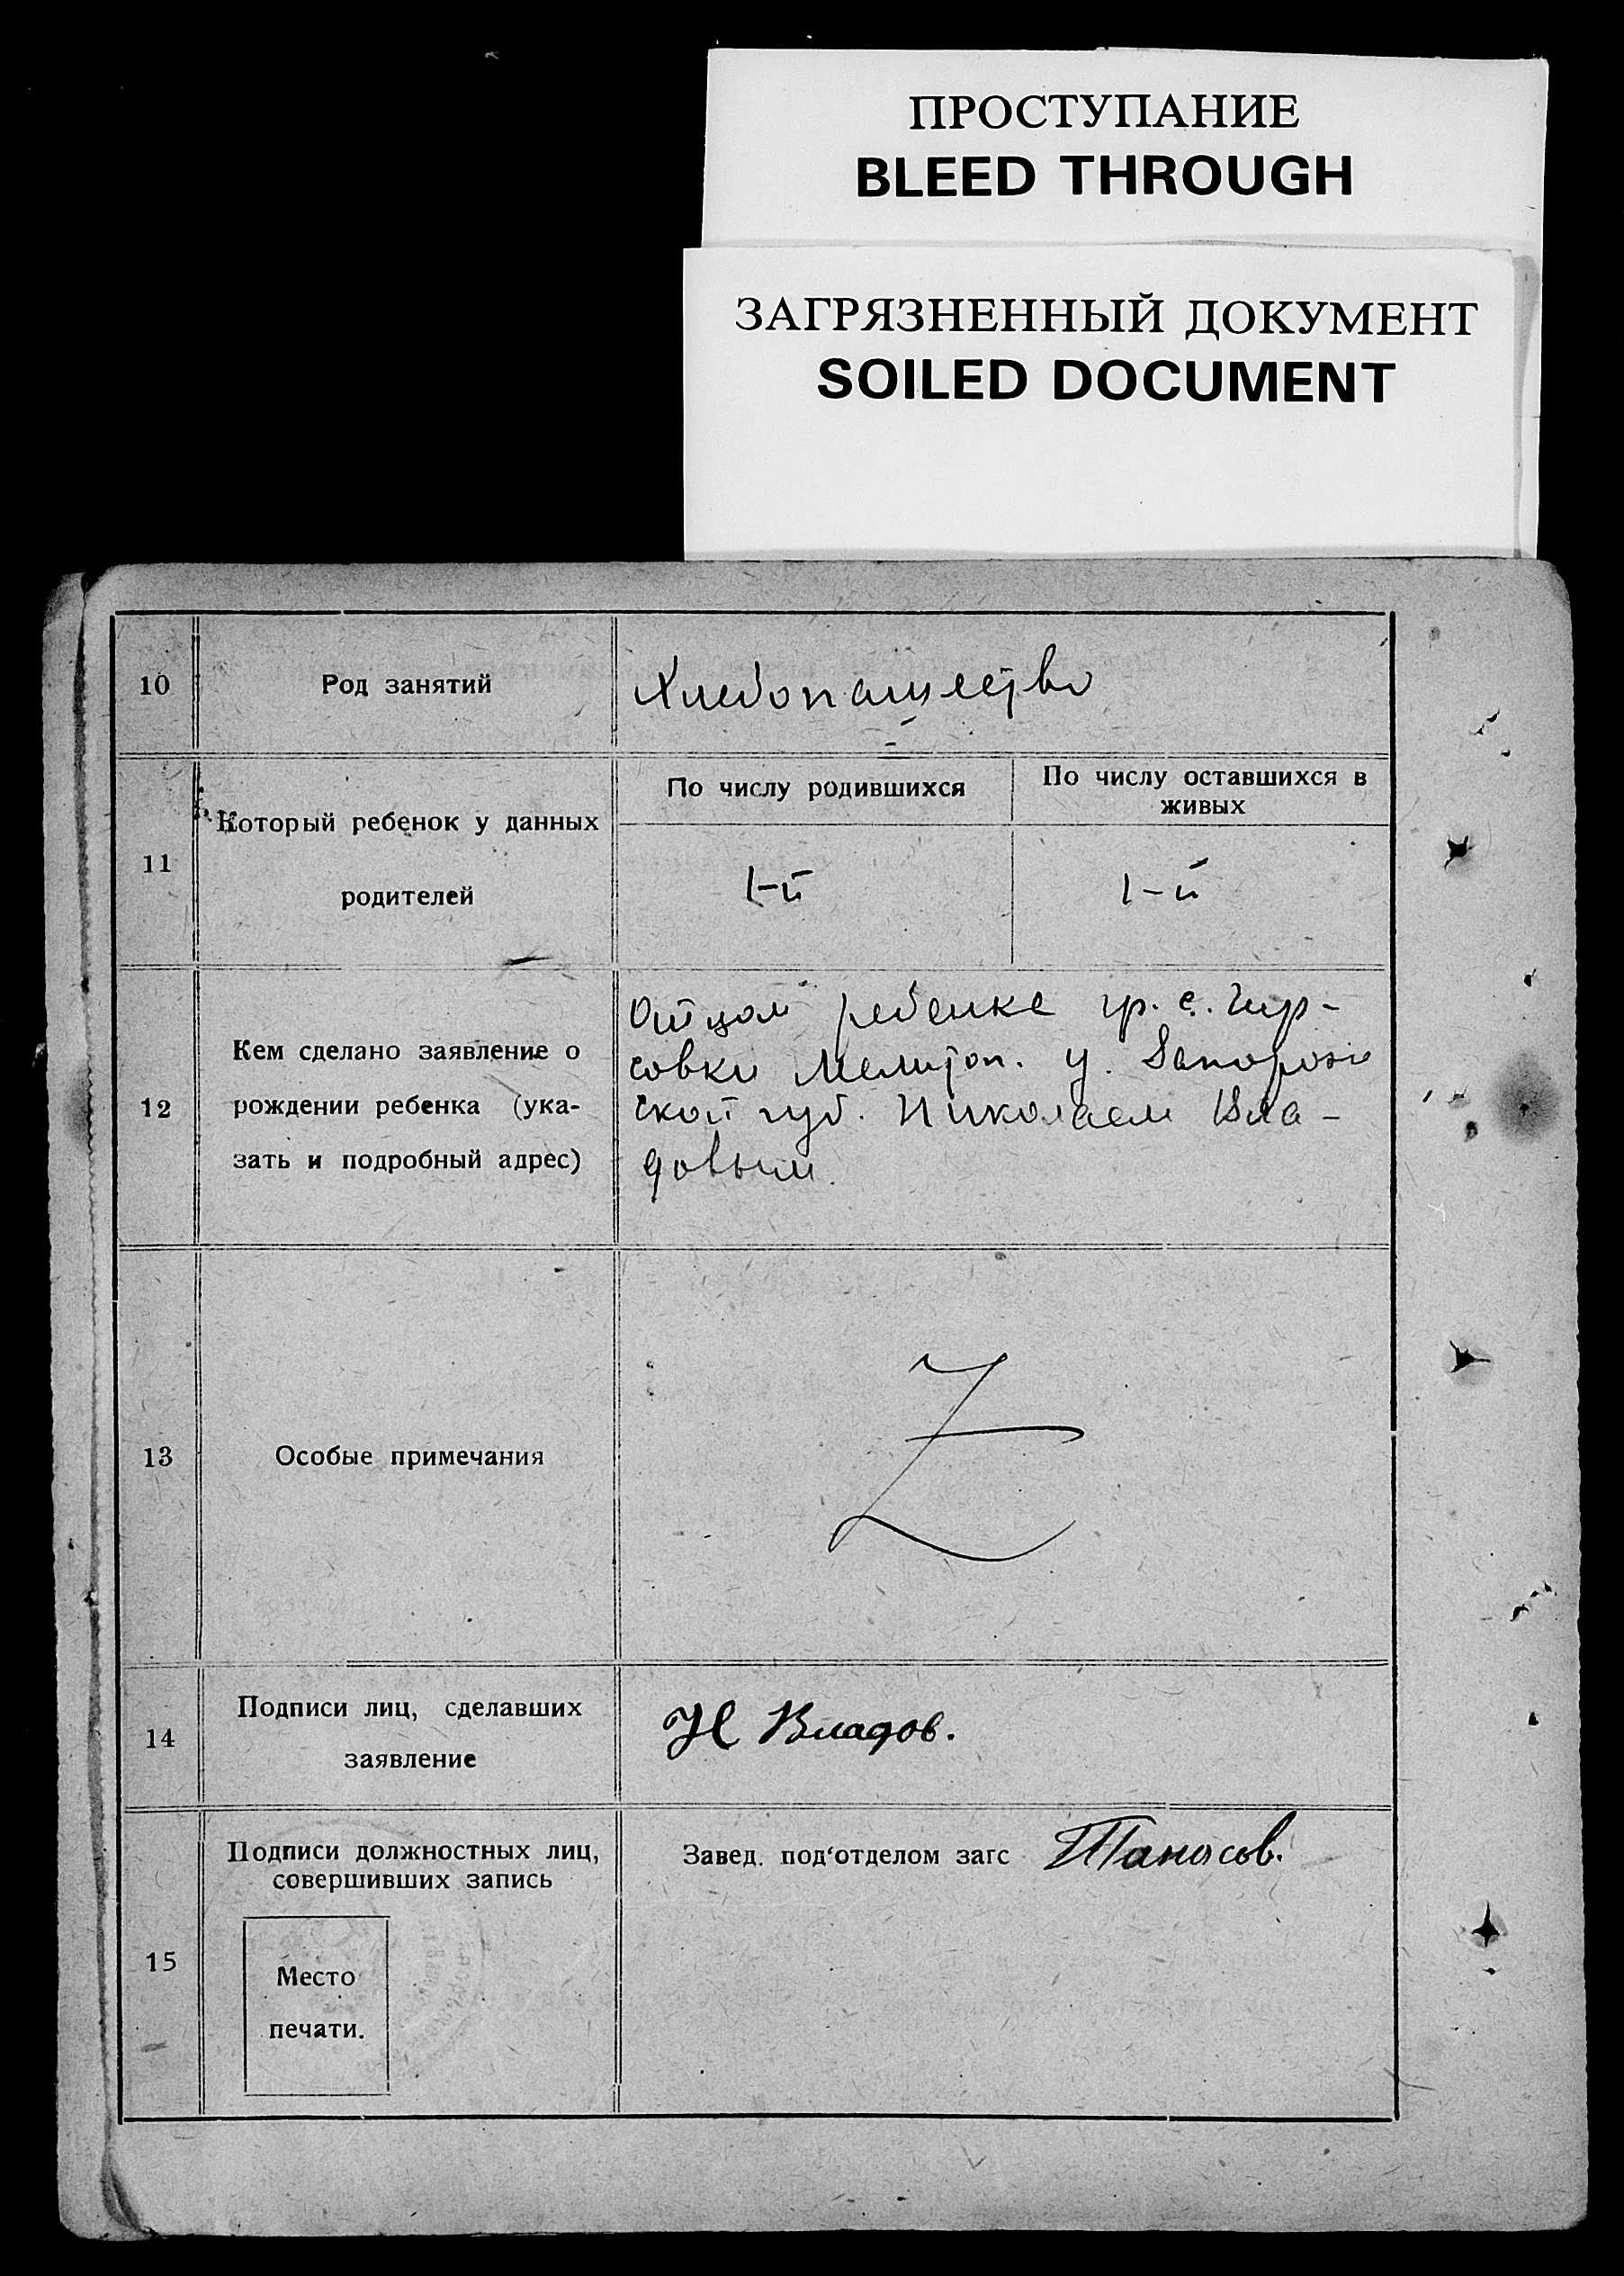 ПРОСТУПАНИЕ
BLEED THROUGH
ЗАГРЯЗНЕННЫЙ ДОКУМЕНТ
SOILED DOCUMENT
10
Род занятий
Хлебопашество
11
Который ребенок у данных
родителей
По числу родившихся
1-й
По числу оставшихся в
живых
1-й
12
Кем сделано заявление о
рождении ребенка (ука-
зать и подробный адрес)
Отцом ребенке гр. с. Гир-
совки Мелитоп. у. Запорож
ской губ. Николаем Вла-
довым.
13
Особые примечания
Z
14
Подписи лиц, сделавших
заявление
Н Владов.
15
Подписи должностных лиц,
совершивших запись
Место
печати.
Завед. под'отделом загс Танасов.